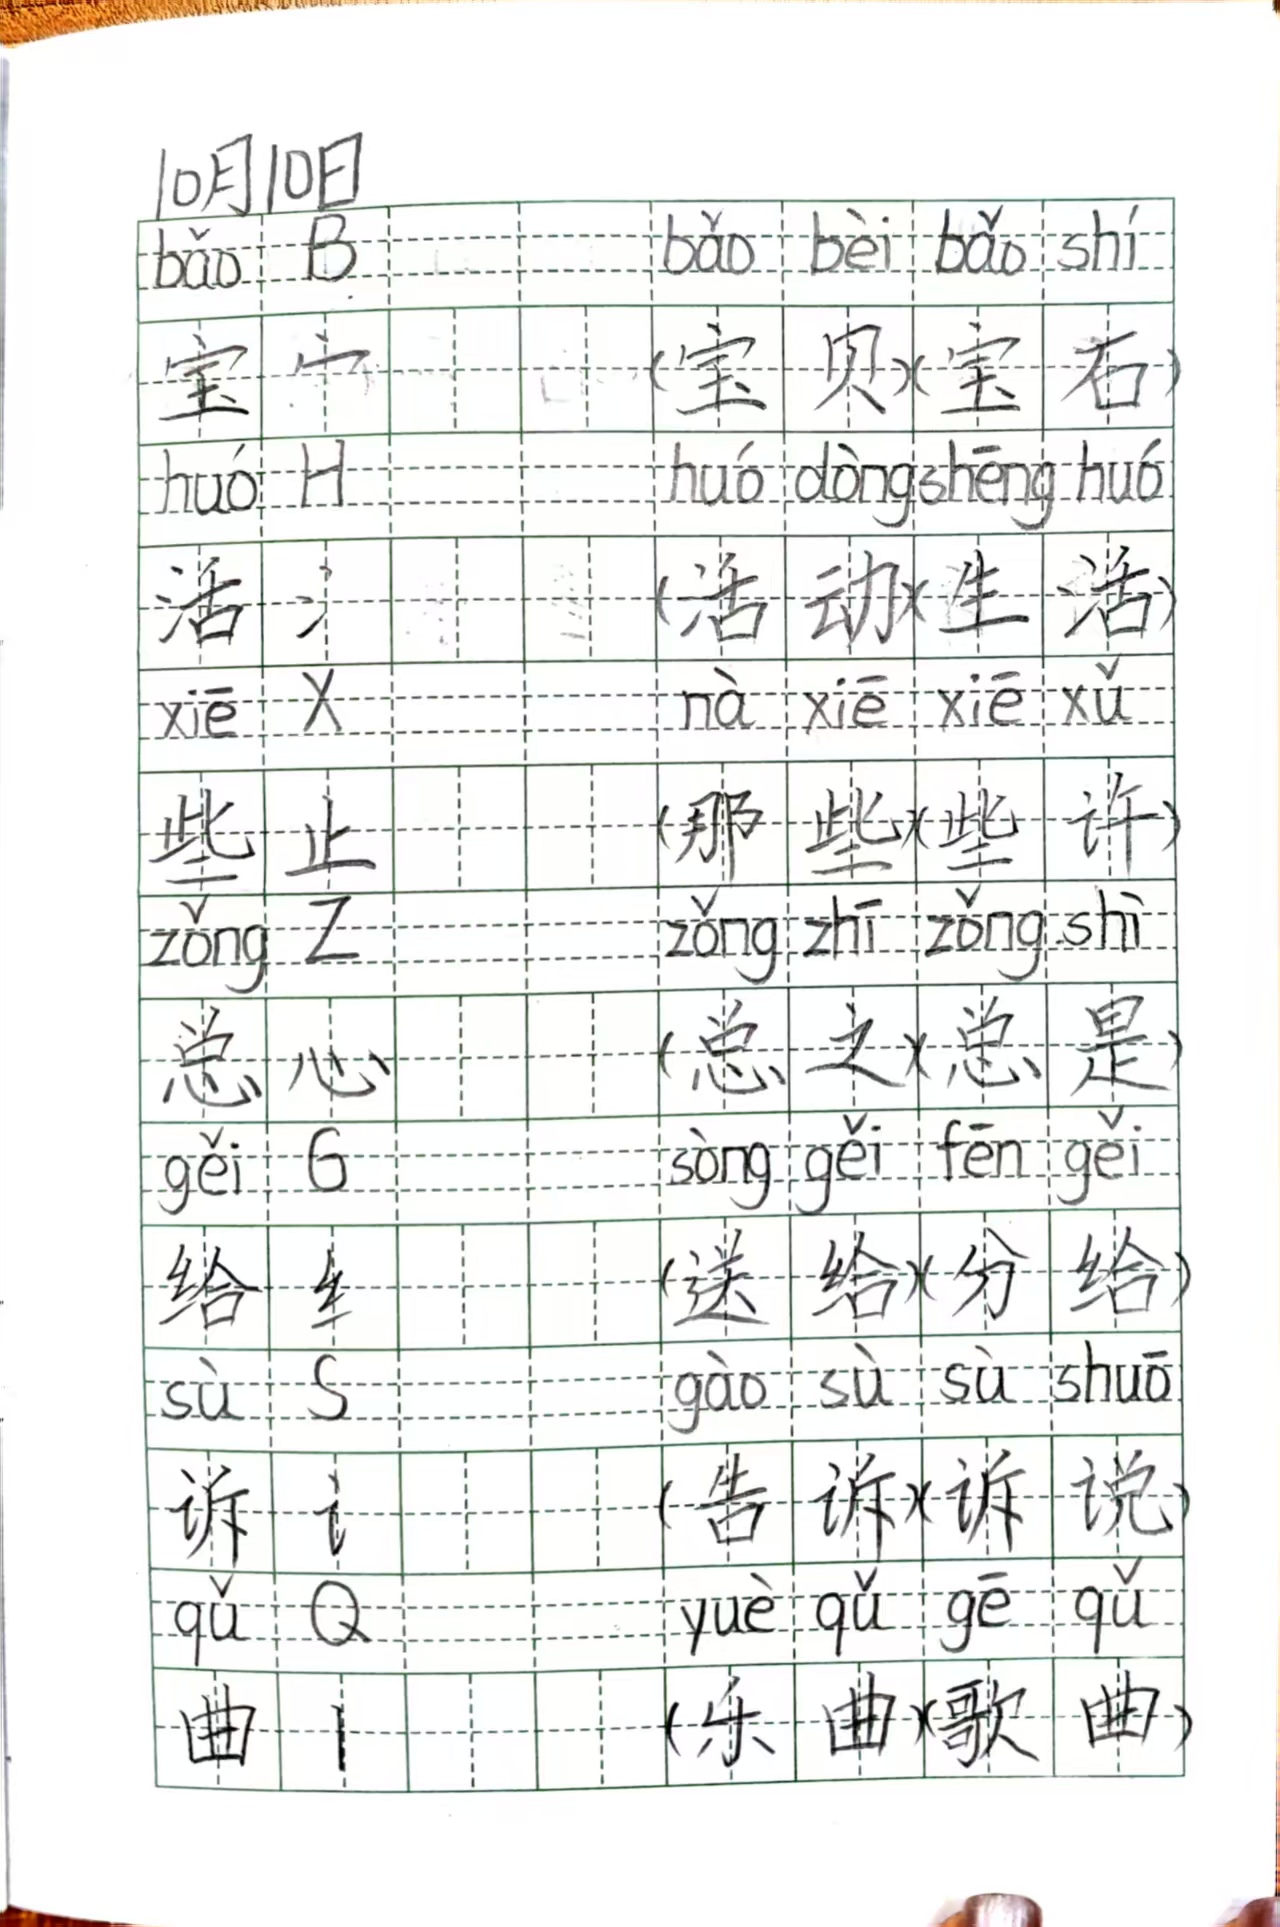 10月10日
bǎo B bǎo bèi bǎo shí
宝 宀 (宝贝)(宝石)
huó H huó dòng shēng huó
活 氵 (活动)(生活)
xiē X nà xiē xiē xǔ
些 止 (那些)(些许)
zǒng Z zǒng zhī zǒng shì
总 心 (总之)(总是)
gěi G sòng gěi fēn gěi
给 纟 (送给)(分给)
sù S gào sù sù shuō
诉 讠 (告诉)(诉说)
qǔ Q yuè qǔ gē qǔ
曲 丨 (乐曲)(歌曲)